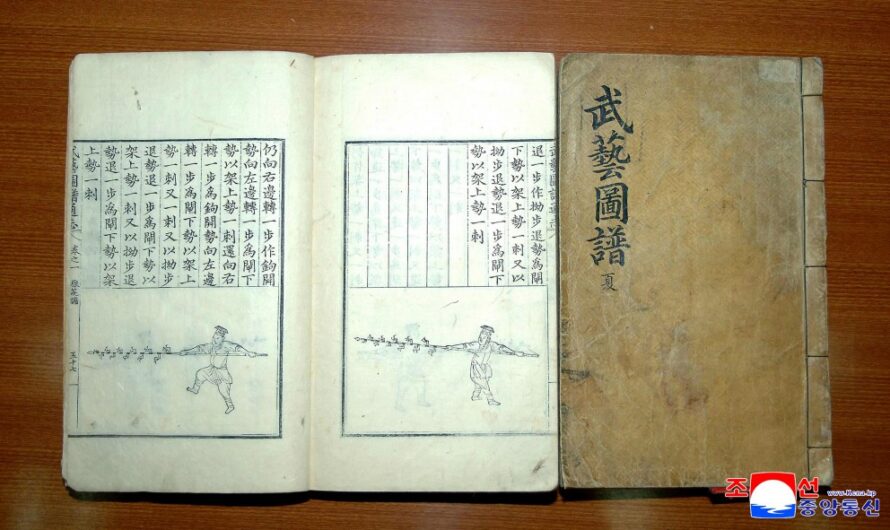 退一步作拗步退勢爲閘
下勢以架上勢一刺又以
拗步退勢退一步爲閘下
勢以架上勢一刺
仍向右邊轉一步作鉤開
勢向左邊轉一步爲閘下
勢以架上勢一刺還向右
轉一步爲鉤開勢向左邊
轉一步爲閘下勢以架上
勢一刺又一刺又以拗步
退勢退一步爲閘下勢以
架上勢一刺又以拗步退
勢退一步爲閘下勢以架
上勢一刺
武藝圖譜通志 卷之一 狼筅譜 五十七
武藝圖譜
夏
조선
www.kcna.kp
중앙통신